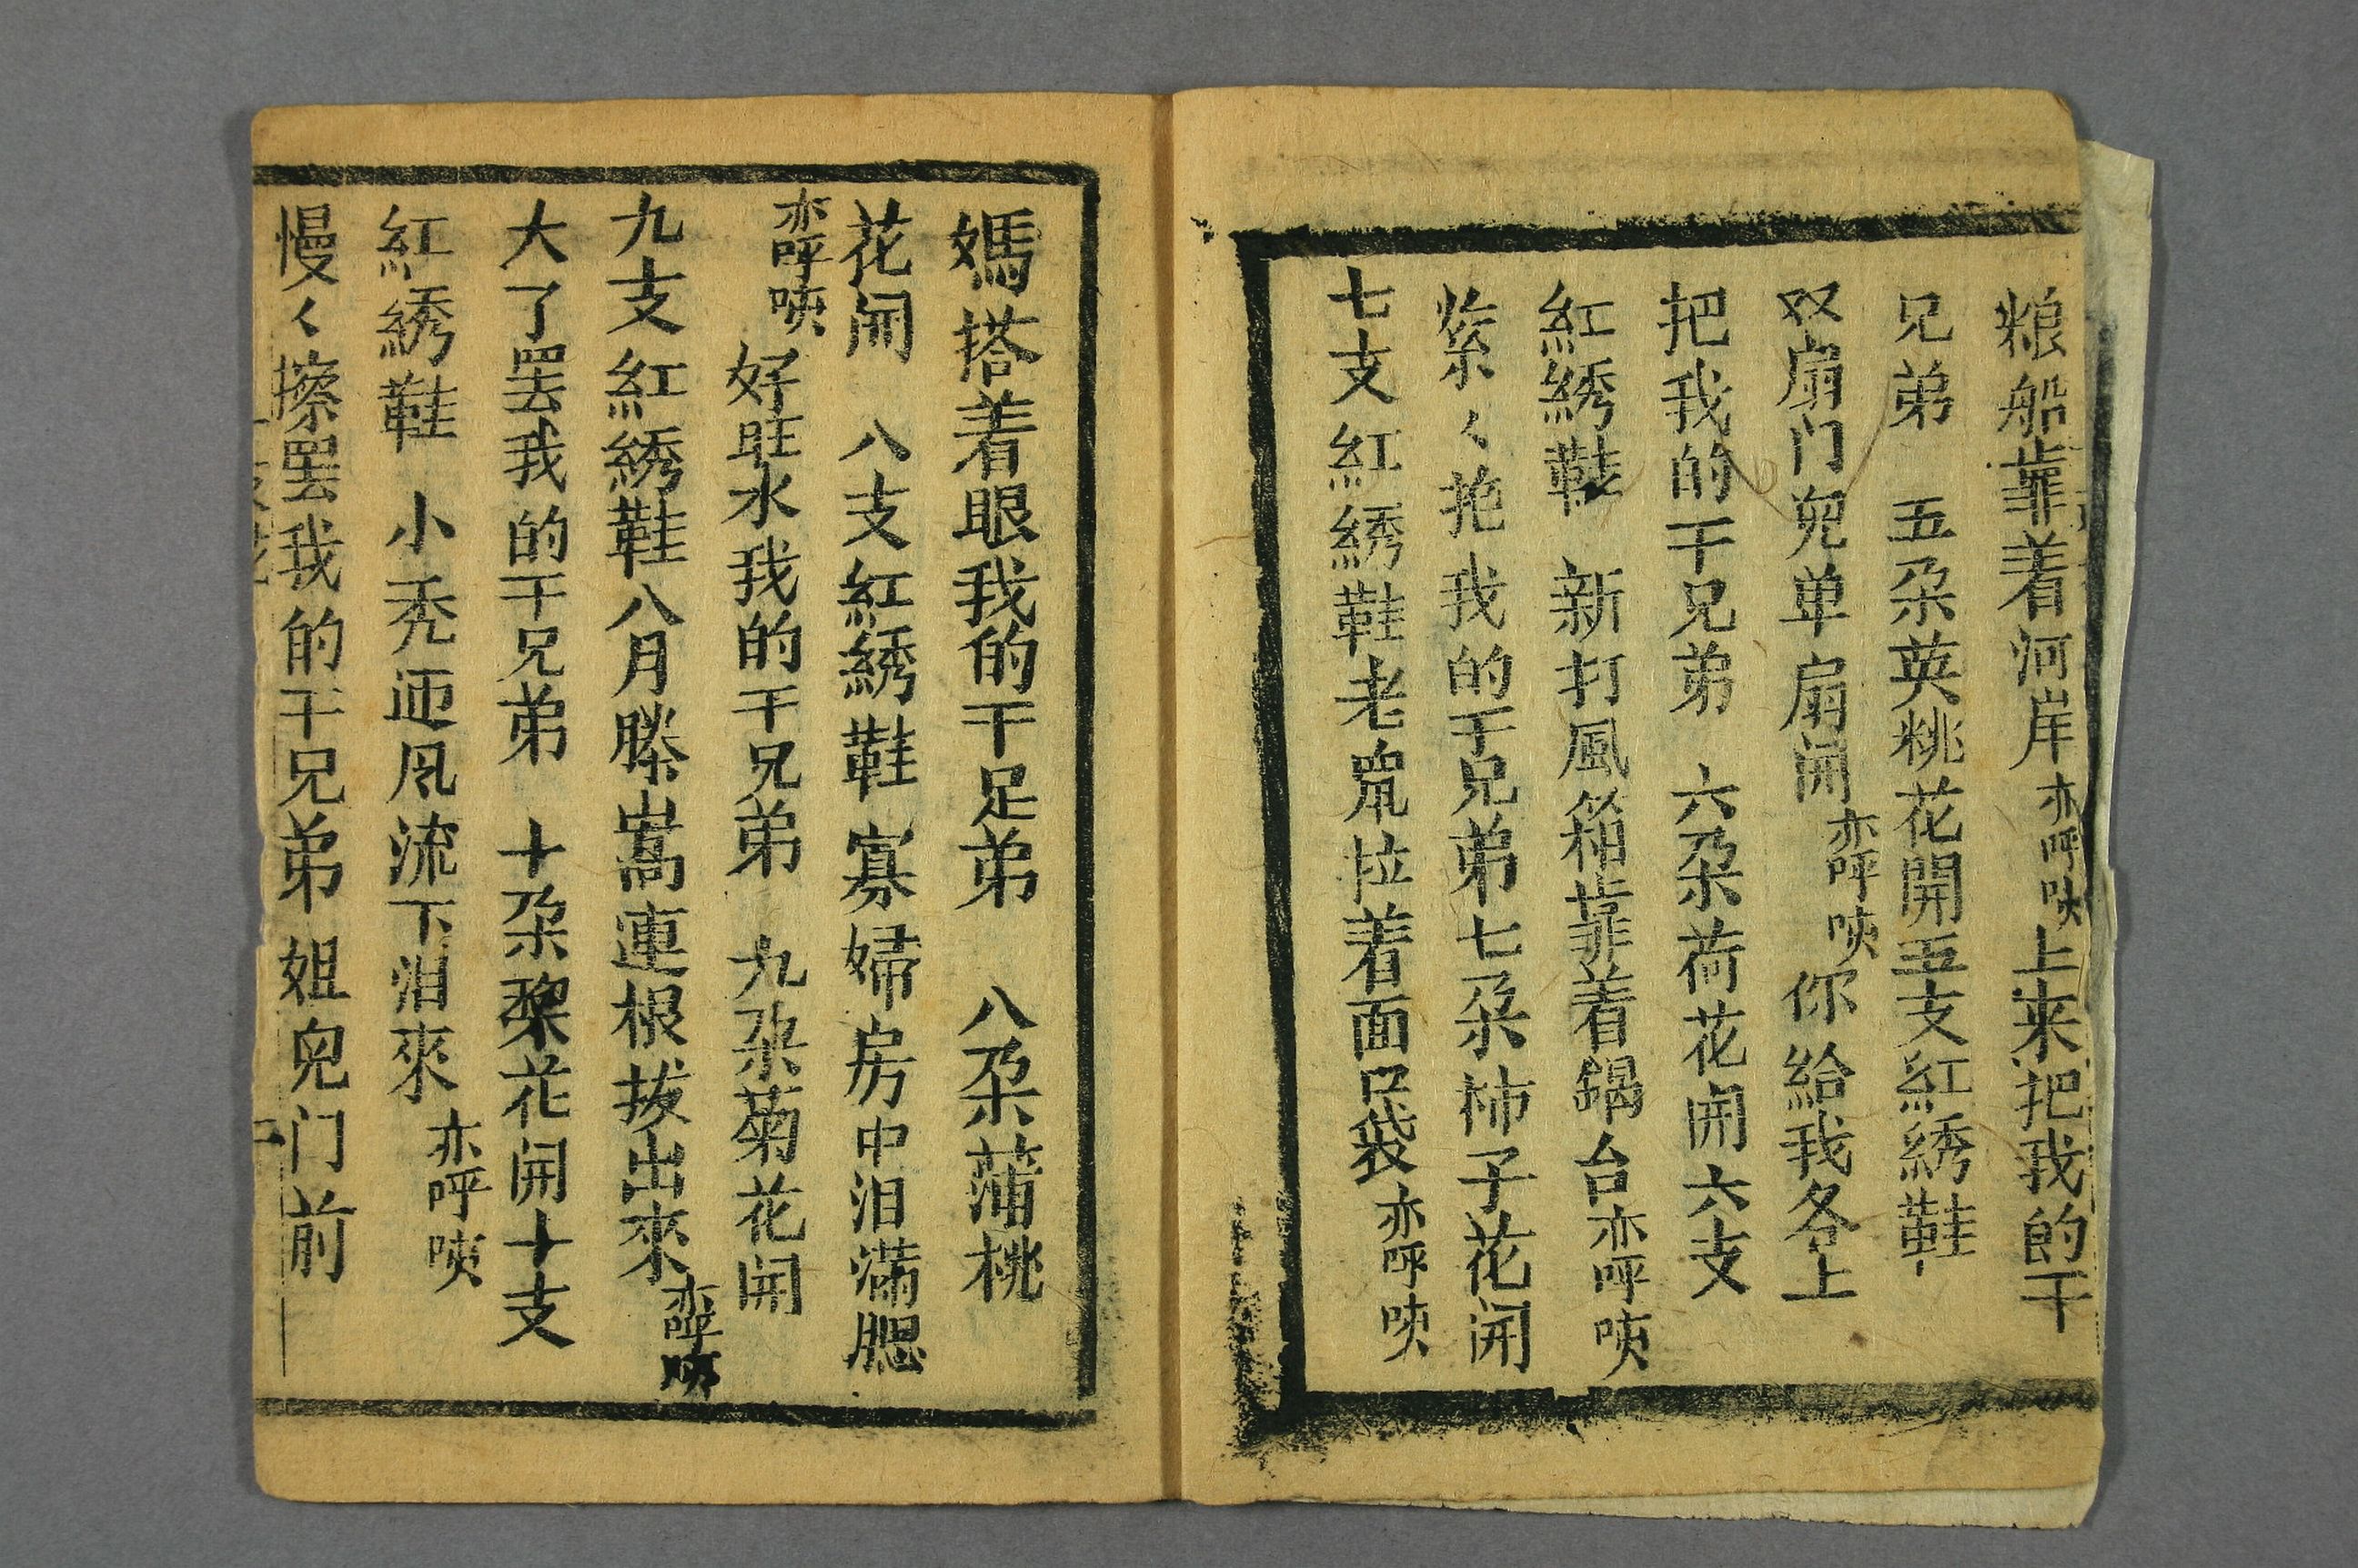 粮船靠着河岸亦呼咦上来把我的干
兄弟 五朶英桃花開五支紅綉鞋
双扇门兜单扇闭亦呼咦你给我各上
把我的干兄弟 六朶荷花開六支
紅綉鞋 新打風箱靠着鍋台亦呼咦
紧〻抱我的干兄弟七朶柿子花開
七支紅綉鞋老鼠拉着面口袋亦呼咦
媽搭着眼我的干足弟 八朶蒲桃
花開 八支紅綉鞋 寡婦房中泪滿腮
亦呼咦好旺水我的干兄弟 九朶菊花開
九支紅綉鞋八月滕嵩連根拔出來亦呼咦
大了罢我的干兄弟 十朶黎花開十支
紅綉鞋 小秃迊风流下泪來 亦呼咦
慢〻擦罢我的干兄弟 姐兜门前